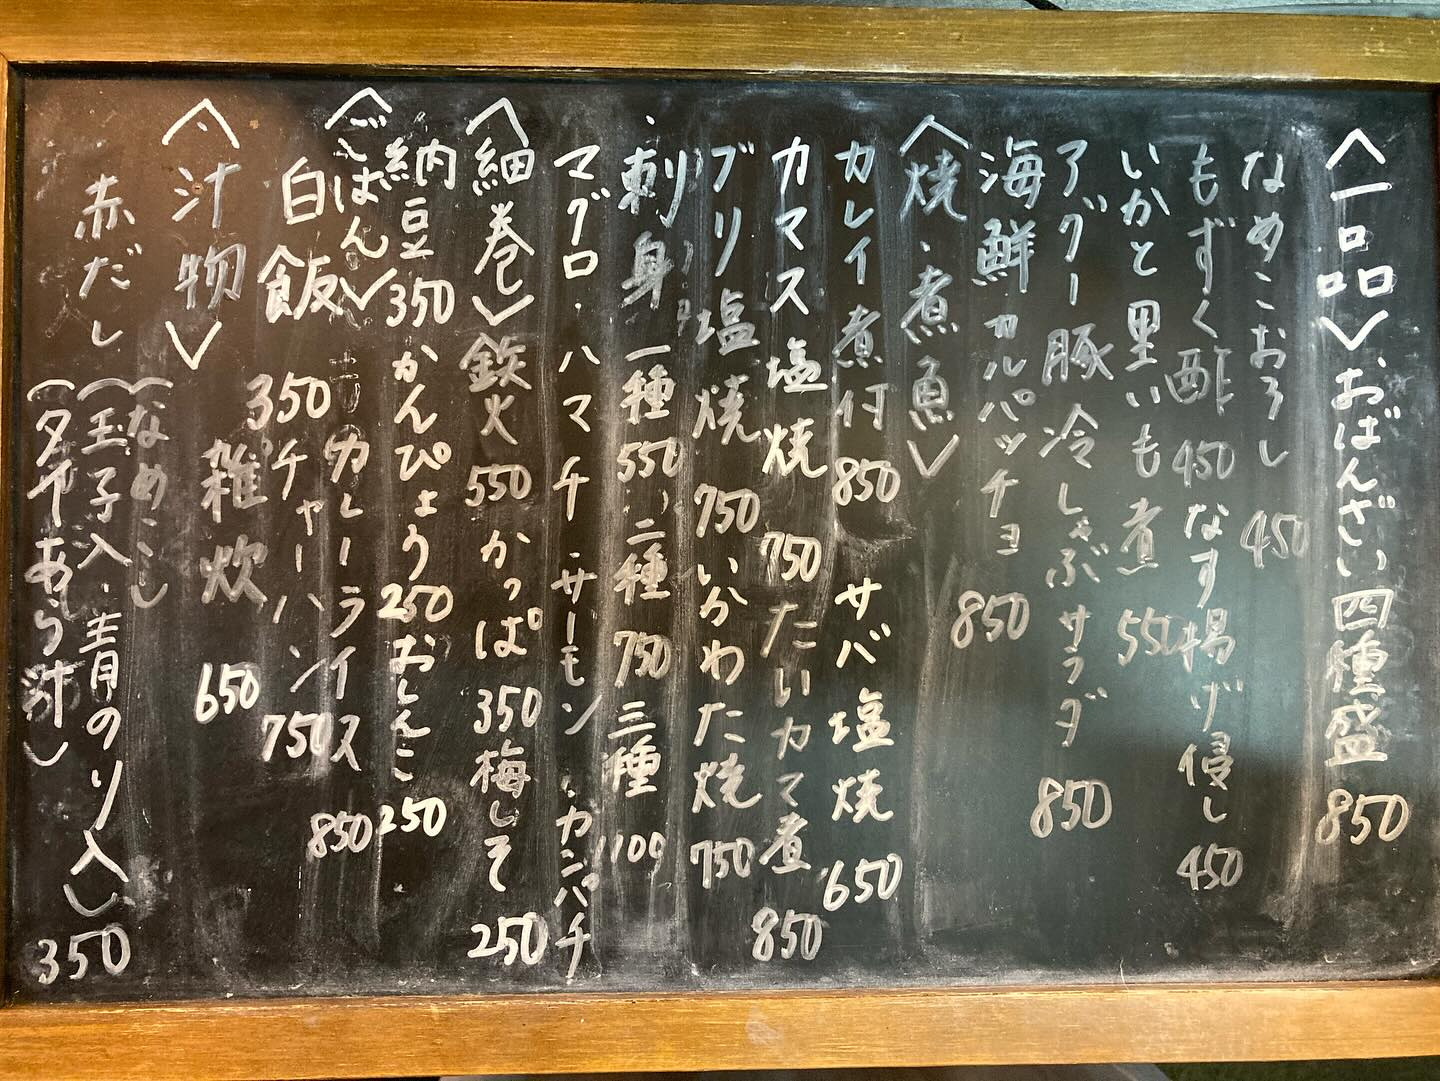 〈一品〉、おばんざい四種盛 850
なめこおろし 450
もずく酢 450 なす揚げ浸し 450
いかと里いも煮 550
アグー豚冷しゃぶサラダ 850
海鮮カルパッチョ 850
〈焼・煮魚〉
カレイ煮付 850 サバ塩焼 650
カマス塩焼 750 たいカマ煮 850
ブリ塩焼 750 いかわた焼 750
刺身 一種 550、二種 750 三種 1100
マグロ・ハマチ・サーモン・カンパチ
〈細巻〉鉄火 550 かっぱ 350 梅しそ 250
納豆 350 かんぴょう 250 おしんこ 250
〈ごはん〉 カレーライス 850
白飯 350 チャーハン 750
雑炊 650
〈汁物〉
赤だし (なめこ)
(玉子入・青のり入) 350
(タヤあら汁)